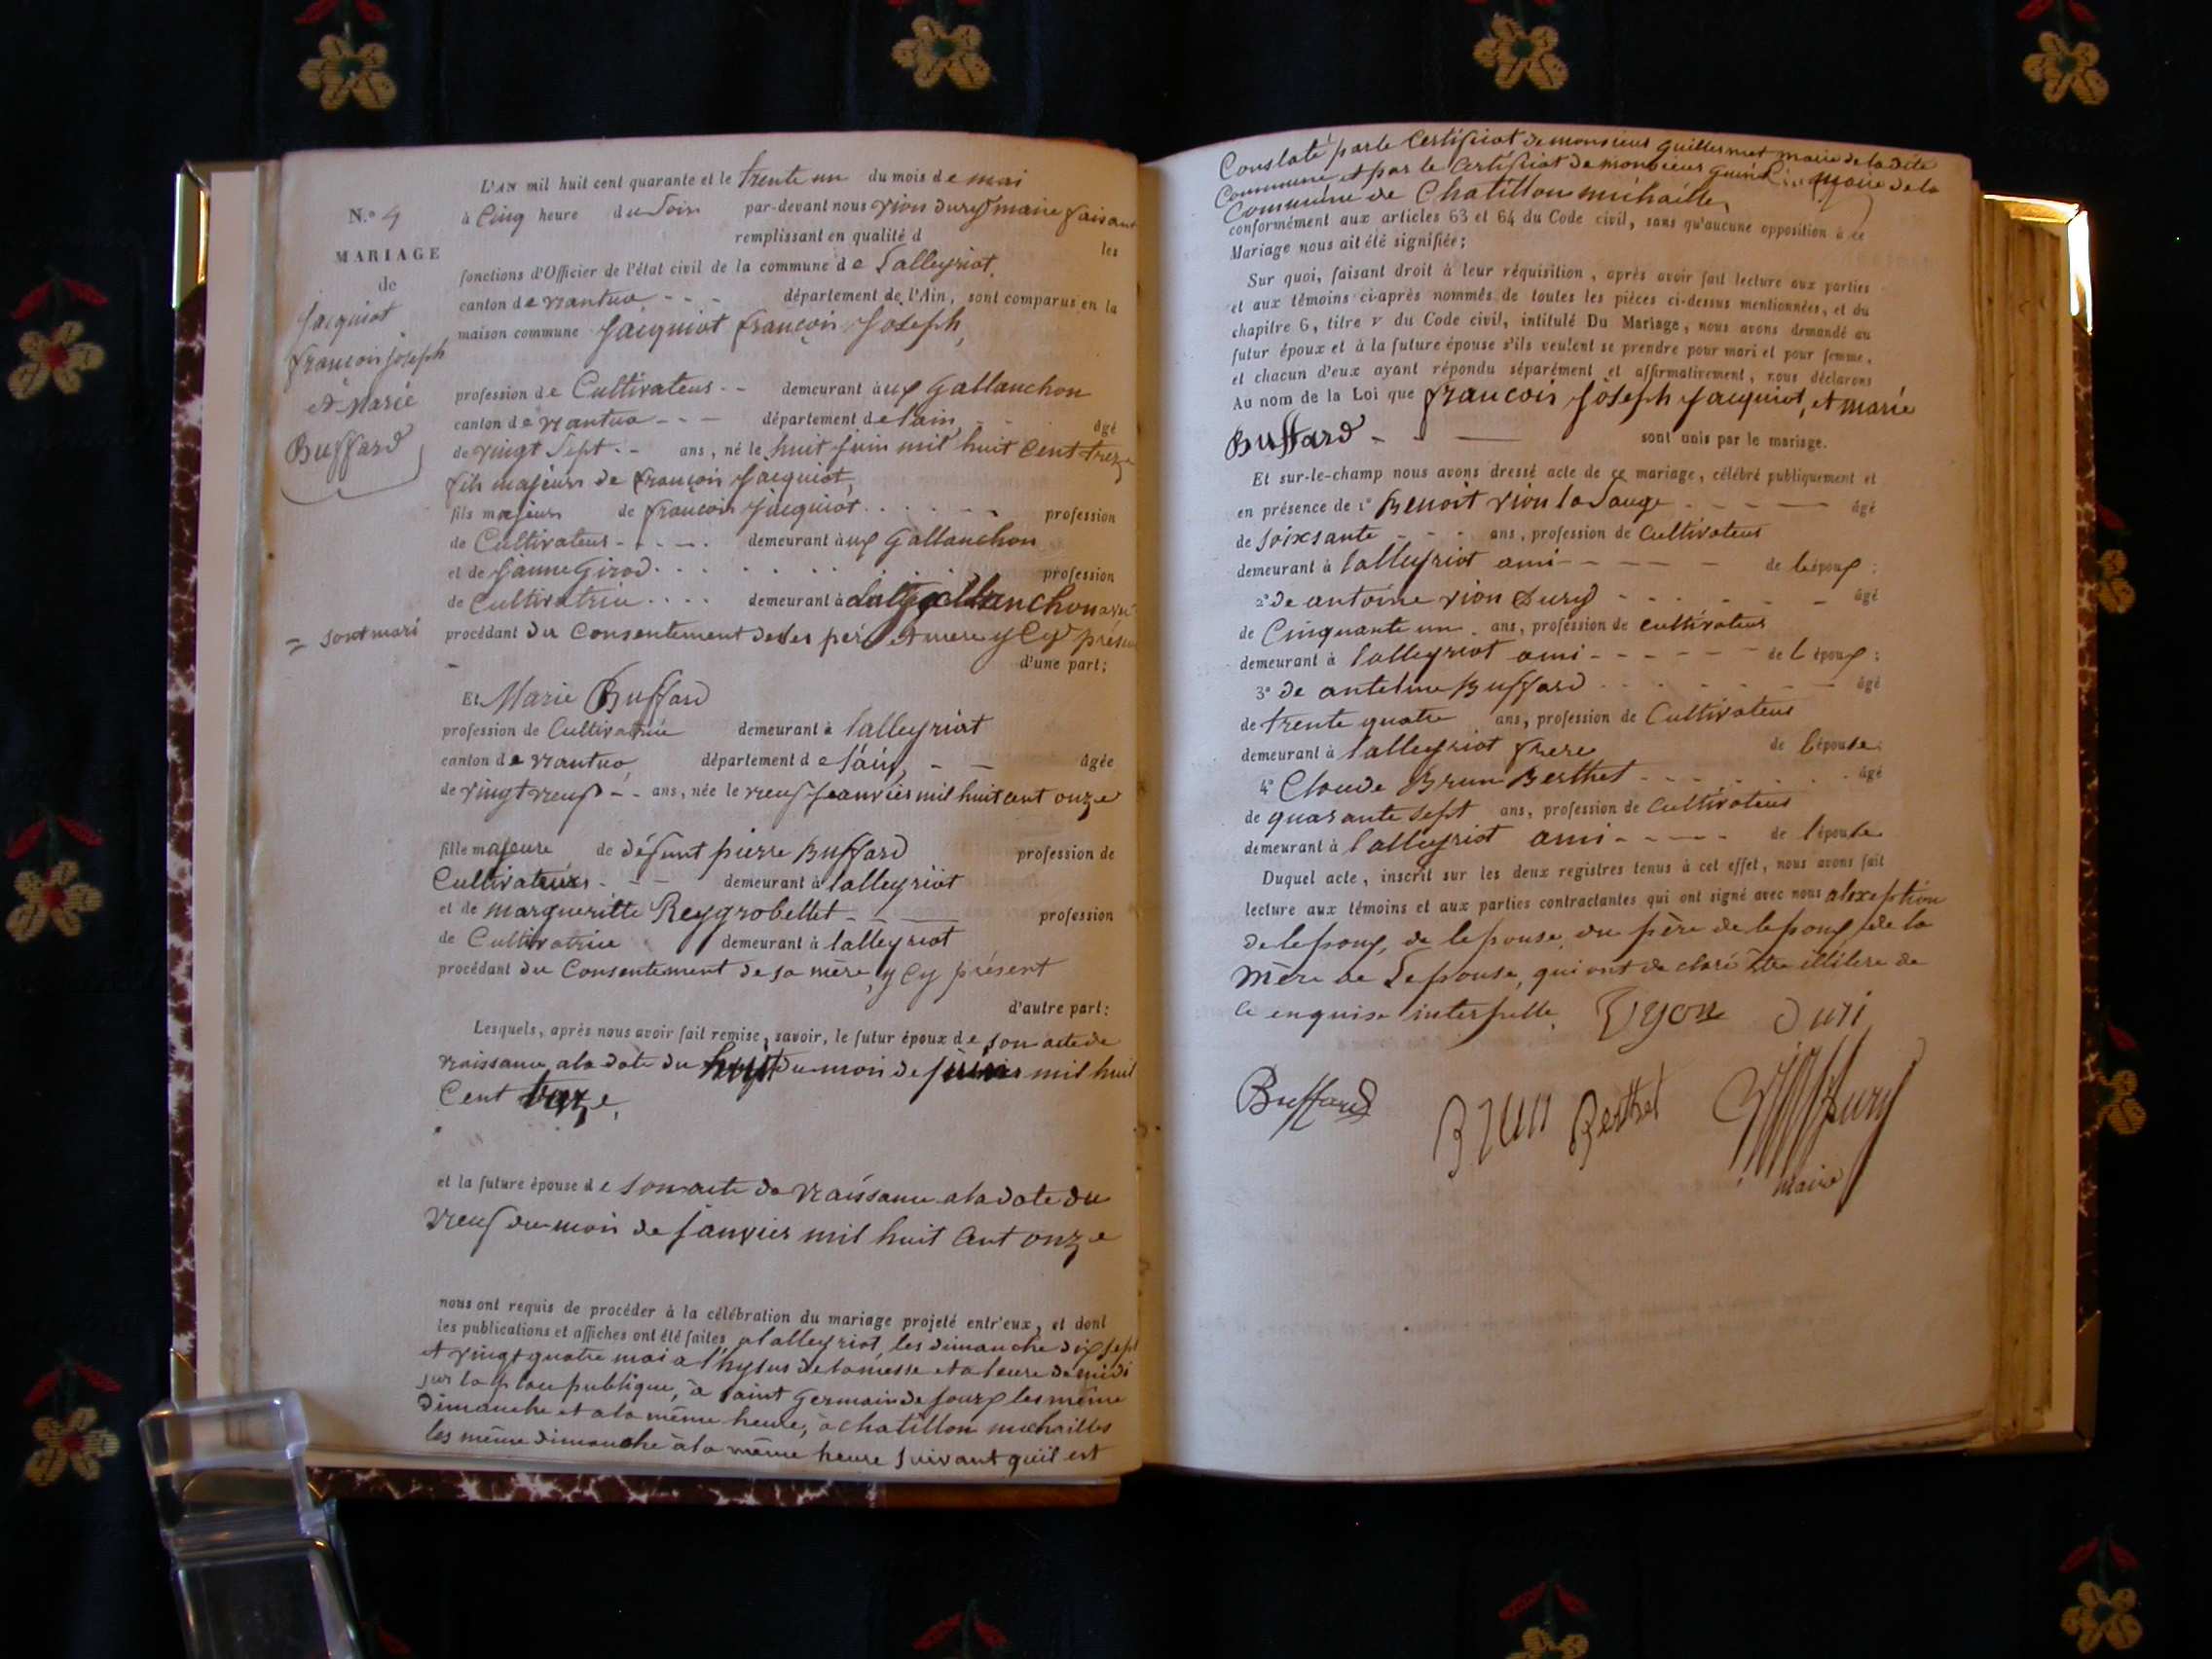 L'AN mil huit cent quarante et le trente un du mois de mai
N.º 4
à Cinq heure du Soir par-devant nous vion dury maire faisant
remplissant en qualité d les
MARIAGE
de
Jacquiot
françois joseph
et Marie
Buffard
fonctions d'Officier de l'état civil de la commune de Lalleyriat
canton de nantua - - - département de l'Ain, sont comparus en la
maison commune Jacquiot françois Joseph,
profession de Cultivateur - - demeurant à Gallanchon
canton de nantua - - - département de lain, âgé
de vingt Sept - - ans, né le huit juin mil huit Cent treze
fils majeur de françois Jacquiot,
fils majeur de françois jacquiot profession
de Cultivateur - - - - demeurant à Gallanchon
et de janne Girod profession
de Cultivatrice demeurant à gallanchon avec
= sont mari
procédant du Consentement de ses père et mere y Cy présent
d'une part;
Et Marie Buffard
profession de Cultivatrice demeurant à lalleyriat
canton de nantua, département de láin, - - âgée
de vingt neuf - - ans, née le neuf janvier mil huit cent onze
fille majeure de défunt pierre Buffard profession de
Cultivateurs - - - demeurant à lalleyriat
et de margueritte Reygrobellet - - profession
de Cultivatrice demeurant à lalleyriat
procédant du Consentement de sa mère, y Cy présent
d'autre part:
Lesquels, après nous avoir fait remise, savoir, le futur époux de son acte de
naissance a la date du huit du mois de juin mil huit
Cent treze,
et la future épouse de son acte de naissance a la date du
neuf du mois de janvier mil huit cent onze
nous ont requis de procéder à la célébration du mariage projeté entr'eux, et dont
les publications et affiches ont été faites, a lalleyriat, les dimanche dix sept
et vingt quatre mai a l'hysus de la messe et a leure de midi
sur la place publique, à saint Germain de Joux les même
Dimanche et a la même heure, à chatillon michailles
les même dimanche à la même heure suivant quil est
Constaté par le Certificat de monsieur guillermet maire de la dite
Commune et par le Certificat de monsieur maire de la
Commune de Chatillon michaille,
conformément aux articles 63 et 64 du Code civil, sans qu'aucune opposition à ce
Mariage nous ait été signifiée;
Sur quoi, faisant droit à leur réquisition, après avoir fait lecture aux parties
et aux témoins ci-après nommés de toutes les pièces ci-dessus mentionnées, et du
chapitre 6, titre v du Code civil, intitulé Du Mariage, nous avons demandé au
futur époux et à la future épouse s'ils veulent se prendre pour mari et pour femme,
et chacun d'eux ayant répondu séparément et affirmativement, nous déclarons
Au nom de la Loi que francois Joseph Jacquiot, et marie
Buffard - - — sont unis par le mariage.
Et sur-le-champ nous avons dressé acte de ce mariage, célébré publiquement et
en présence de 1º Benoit vion la Sauge - - - — âgé
de soixsante - - - ans, profession de Cultivateur
demeurant à lalleyriat ami - - - - - de lépoux:
2º de antoine vion Dury - - - - - âgé
de Cinquante un ans, profession de cultivateur
demeurant à lalleyriat ami - - - - - - de l époux:
3º de antelme Buffard - - - - âgé
de trente quatre ans, profession de Cultivateur
demeurant à lalleyriat frere de lépouse;
4º Claude Brun Berthet - - - - âgé
de quarante sept ans, profession de Cultivateur
demeurant à lalleyriat ami - - - - - de lépouse
Duquel acte, inscrit sur les deux registres tenus à cet effet, nous avons fait
lecture aux témoins et aux parties contractantes qui ont signé avec nous alexeption
de lepoux, de lepouse, du père de lepoux, de la
mère de Lepouse, qui ont de claré être illitere de
ce enquise interpelle, Vyon Duri
Buffard Brun Berthet Dury
maire